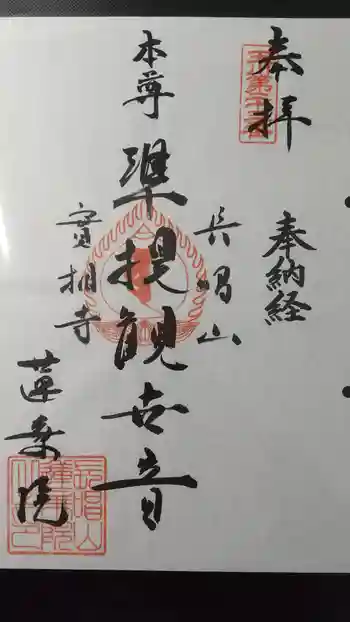 奉拝
奉納経
兵昌山
本尊
準提観世音
實相寺
蓮乗院